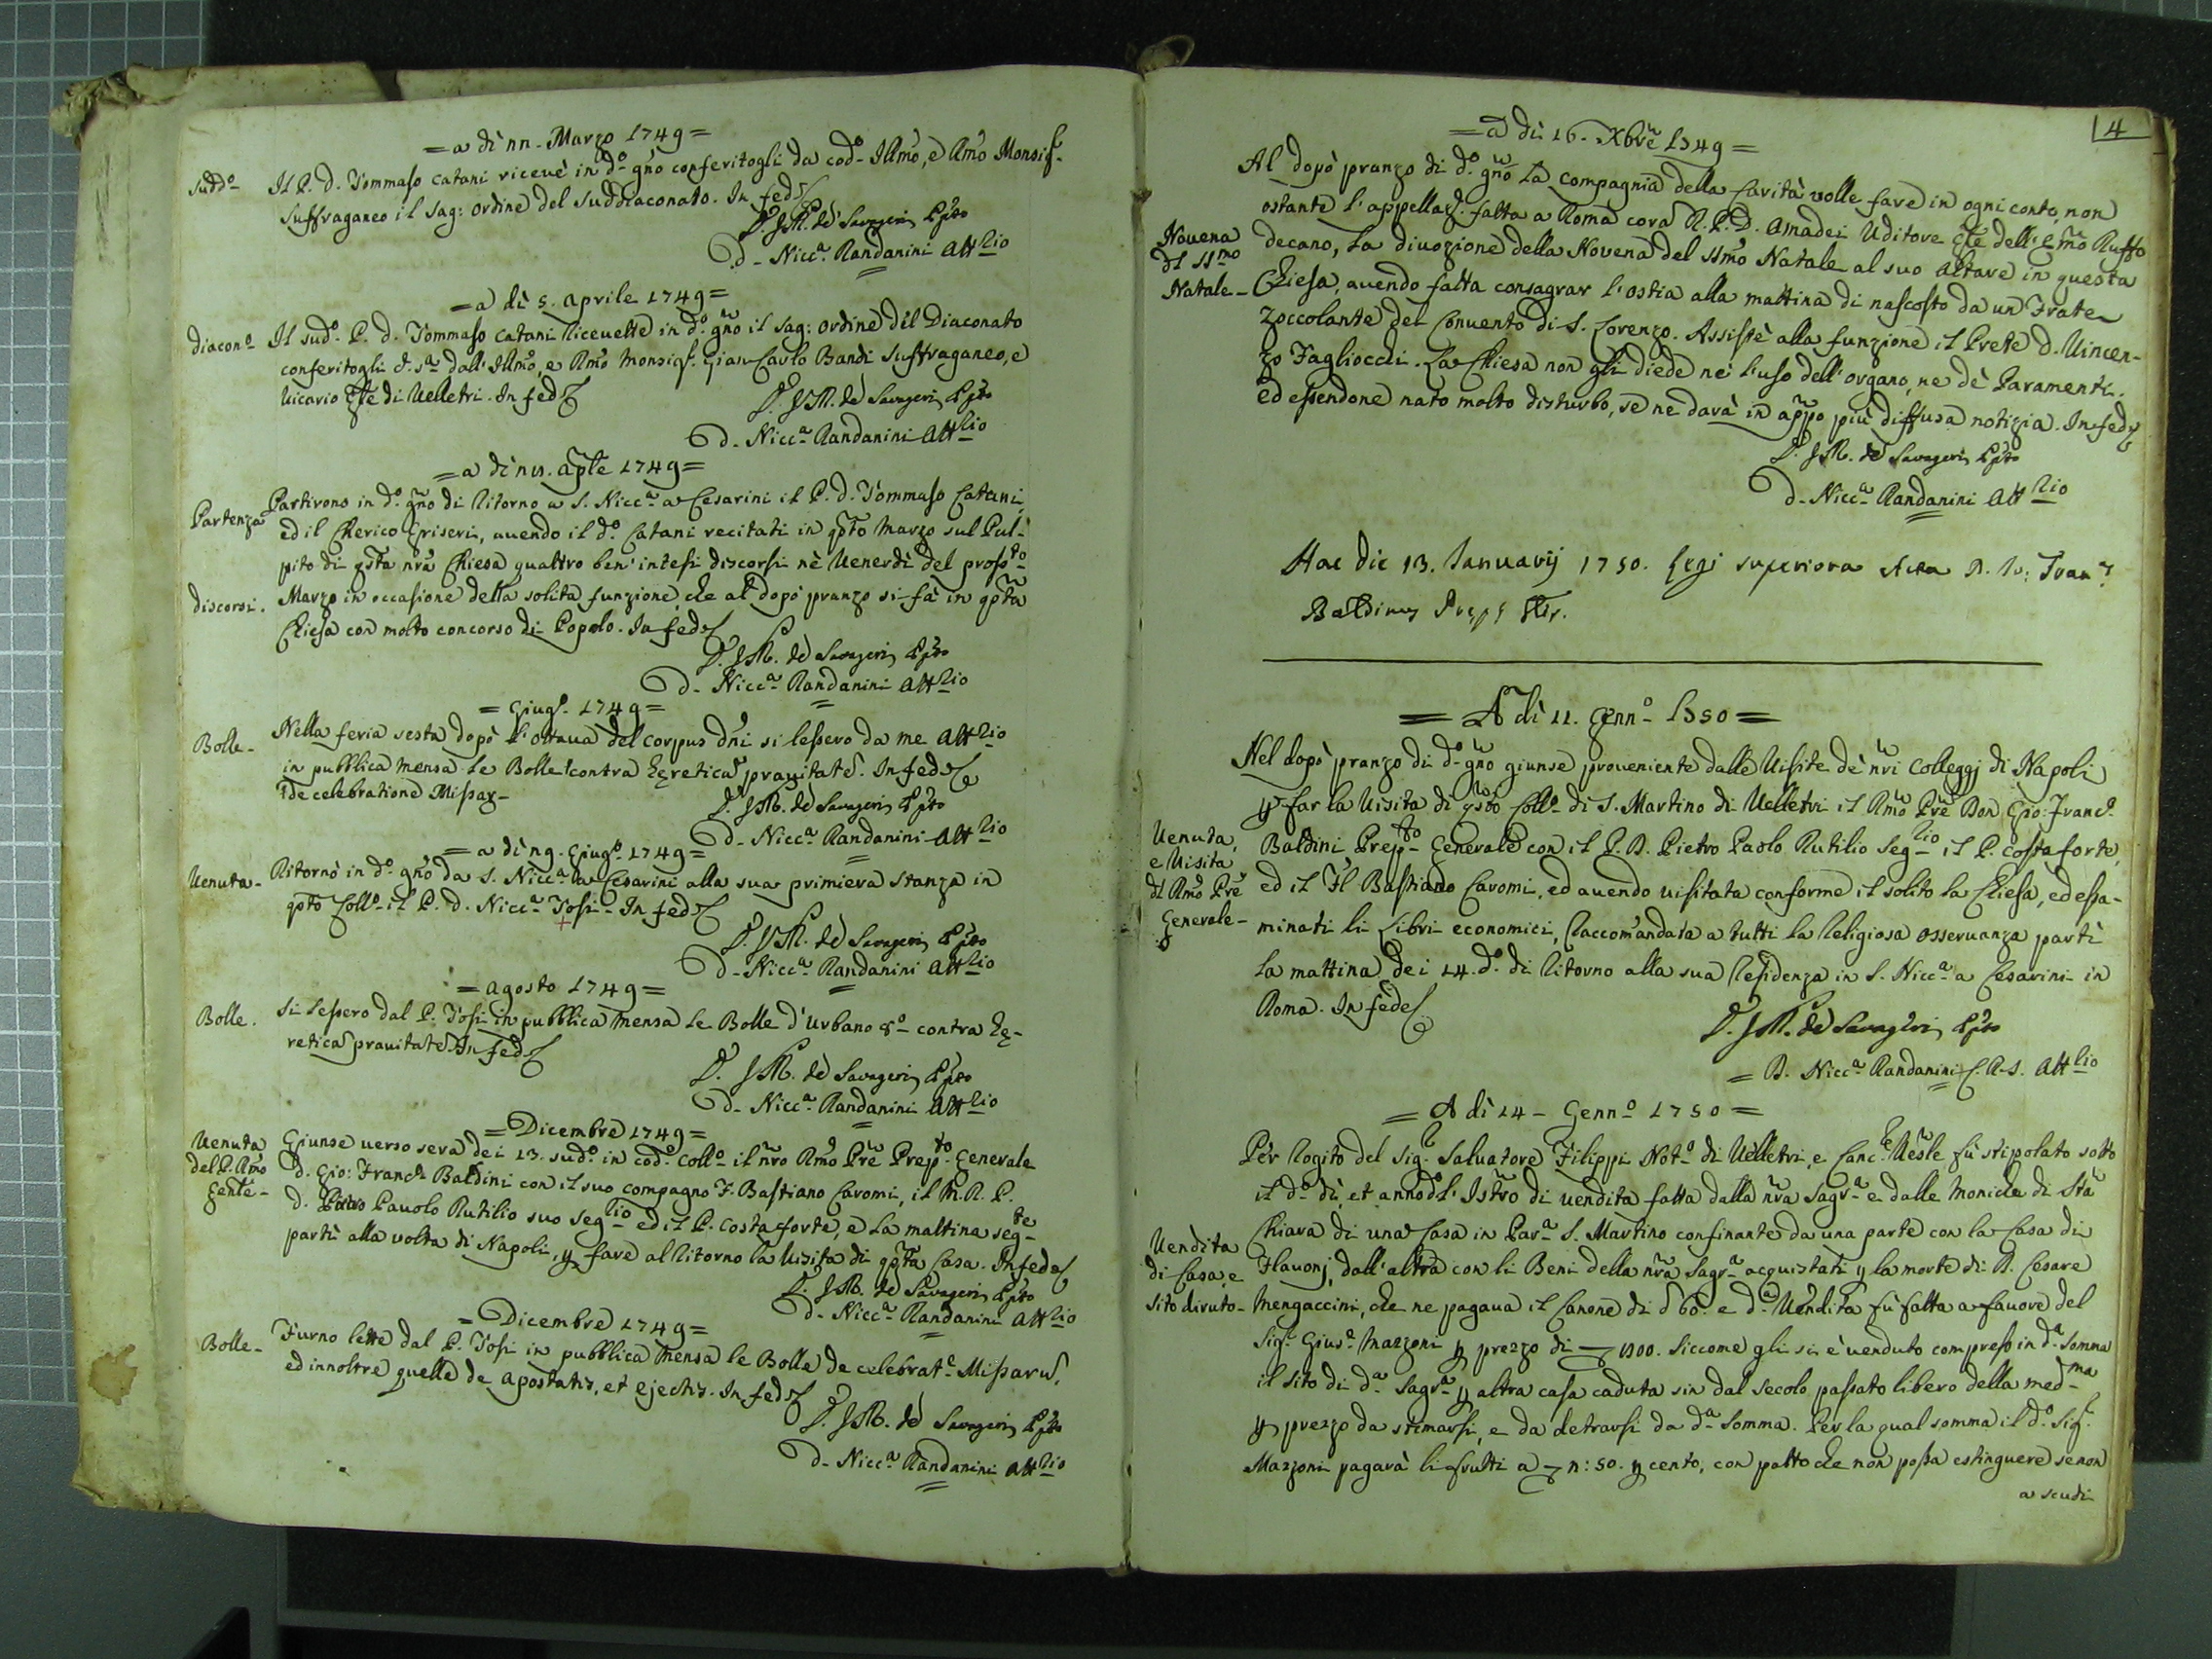 = a dì 22. Marzo 1749 =
Sudd.º Il P. D. Tommaso Catani ricevè in d.º gño conferitogli da cod.º Illmo, e Rmo Monsig.r
Suffraganeo il Sag: Ordine del Suddiaconato. In fede
D. G.M. de Savageri Pp̃to
D. Nicc.ª Randanini Att.lio
= a dì 5. Aprile 1749 =
Diacon.º Il sud.º P. D. Tommaso Catani ricevette in d.º gño il Sag: Ordine del Diaconato
conferitogli dall'Illmo, e Rmo Monsig.r Gian Carlo Bandi Suffraganeo, e
Vicario Gñle di Velletri. In fede
D. G.M. de Savageri Pp̃to
D. Nicc.ª Randanini Att.lio
Aple 1749 =
Partenza Partirono in d.º gño di ritorno a S. Nicc.ª a Cesarini il P. D. Tommaso Catani,
ed il Cherico Griseri, avendo il d.º Catani recitati in q̃sto Marzo sul Pul-
pito di q̃sta nr̃a Chiesa quattro ben' intesi discorsi nè Venerdì del pross.to
discorsi. Marzo in occasione della solita funzione, che al dopo pranzo si fà in q̃sta
Chiesa con molto concorso di Popolo. In fede
D. G.M. de Savageri Pp̃to
D. Nicc.ª Randanini Att.lio
= Giug.º 1749 =
Bolle - Nella feria sesta dopò l'ottava del Corpus Dñi si lessero da me Att.lio
in pubblica mensa le Bolle contra hęreticã pravitatẽ. In fede
de celebratione Missar-
D. G.M. de Savageri Pp̃to
D. Nicc.ª Randanini Att.lio
= a dì 29. Giug.º 1749 =
Venuta - Ritornò in d.º gño da S. Nicc.ª a Cesarini alla sua primiera stanza in
q̃sto Coll.º il P. D. Nicc.ª Tosi - In fede
D. G.M. de Savageri Pp̃to
D. Nicc.ª Randanini Att.lio
= Agosto 1749 =
Bolle. Si lessero dal P. Tosi in pubblica mensa le Bolle d'Urbano 8.º contra hę-
reticã pravitatẽ. In fede
D. G.M. de Savageri Pp̃to
D. Nicc.ª Randanini Att.lio
= Dicembre 1749 =
Venuta Giunse verso sera dei 13. sud.º in cod.º Coll.º il nr̃o Rmo Prẽ Prep.to Generale
del P. Rmo D. Gio: Franc.º Baldini con il suo compagno F. Bastiano Caromi, il M. R. P.
Genle - D. Pietro Pavolo Rutilio suo Seg.lio ed il P. Costaforte, e la mattina seg.te
partì alla volta di Napoli, p fare al ritorno la visita di q̃sta Casa. In fede
D. G.M. de Savageri Pp̃to
D. Nicc.ª Randanini Att.lio
= Dicembre 1749 =
Bolle - Furno lette dal P. Tosi in pubblica mensa le Bolle de celebrat.e Missarũ,
ed innoltre quelle de Apostatis, et ejectis. In fede
D. G.M. de Savageri Pp̃to
D. Nicc.ª Randanini Att.lio
4
= a dì 16. Xbrẽ 1749 =
Al dopò pranzo di d.º gño la Compagnia della Carità volle fare in ogni conto, non
ostante l'appellaz.e fatta a Roma corã R. P. D. Amadei Uditore Gñle dell'Emo Ruffo
Novena Decano, la divozione della Novena del SSmo Natale al suo Altare in questa
dl SSmo Chiesa, avendo fatta consagrar l'ostia alla mattina di nascosto da un Frate
Natale - Zoccolante del Convento di S. Lorenzo. Assistè alla funzione il Prete D. Vincen-
zo Fagliocchi. La Chiesa non gli diede nè l'uso dell'organo, nè dè Paramenti.
ed essendone nato molto disturbo, se ne darà in app̃o più diffusa notizia. In fede
D. G.M. de Savageri Pp̃to
D. Nicc.ª Randanini Att.lio
Hac die 13. Januarij 1750. Legi superiora Acta D. Jo: Fran.s
Baldinus Prep.s Glis.
= A dì 11. Genn.º 1750 =
Nel dopò pranzo di d.º gño giunse proveniente dalle Visite dè nr̃i Colleggj di Napoli
p far la Visita di q̃sto Coll.º di S. Martino di Velletri il Rmo Prẽ Don Gio: Franc.º
Venuta, Baldini Prep.to Generale con il P. D. Pietro Paolo Rutilio Seg.lio il P. Costaforte,
e Visita ed il Fl Bastiano Caromi, ed avendo visitata conforme il solito la Chiesa, ed essa-
dl Rmo Prẽ
Generale - minati li Libri economici, raccom̃andata a tutti la Religiosa osservanza partì
la mattina dei 14. d.º di ritorno alla sua residenza in S. Nicc.ª a Cesarini in
Roma. In fede
D. G.M. de Savageri Pp̃to
= D. Nicc.ª Randanini C.R.S. Att.lio
= A dì 14 - Genn.º 1750 =
Per Rogito del Sig.r Salvatore Filippi Not.º di Velletri, e Canc.re Vesle fù stipolato sotto
il d.º dì, et anno l'Istr̃o di vendita fatta dalla nr̃a Sagr.ª e dalle Moniche di Stã
Chiara di una Casa in Par.ª S. Martino confinante da una parte con la Casa di
Vendita Flavonj, dall'altra con li Beni della nr̃a Sagr.ª acquistati p la morte di D. Cesare
di Casa, e
sito diruto - Mengaccini, che ne pagava il Canone di 60: e d.ª Vendita fù fatta a favore del
Sig.r Gius.e Mazzoni p prezzo di 200. siccome gli si è venduto compreso in d.ª somma
il sito di d.ª Sagr.ª p altra casa caduta sin dal secolo passato libero della med.ma
p prezzo da stimarsi, e da detrarsi da d.ª somma. Per la qual somma il d.º Sig.r
Mazzoni pagarà li frutti a 2: 50. p cento, con patto che non possa estinguere se non
a scudi